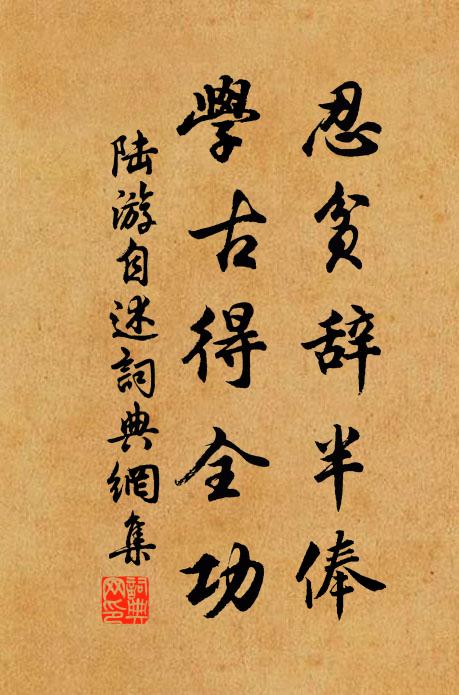 忍贫辞半俸
學古得全功
陆游自述詞典網集
詞典
网印